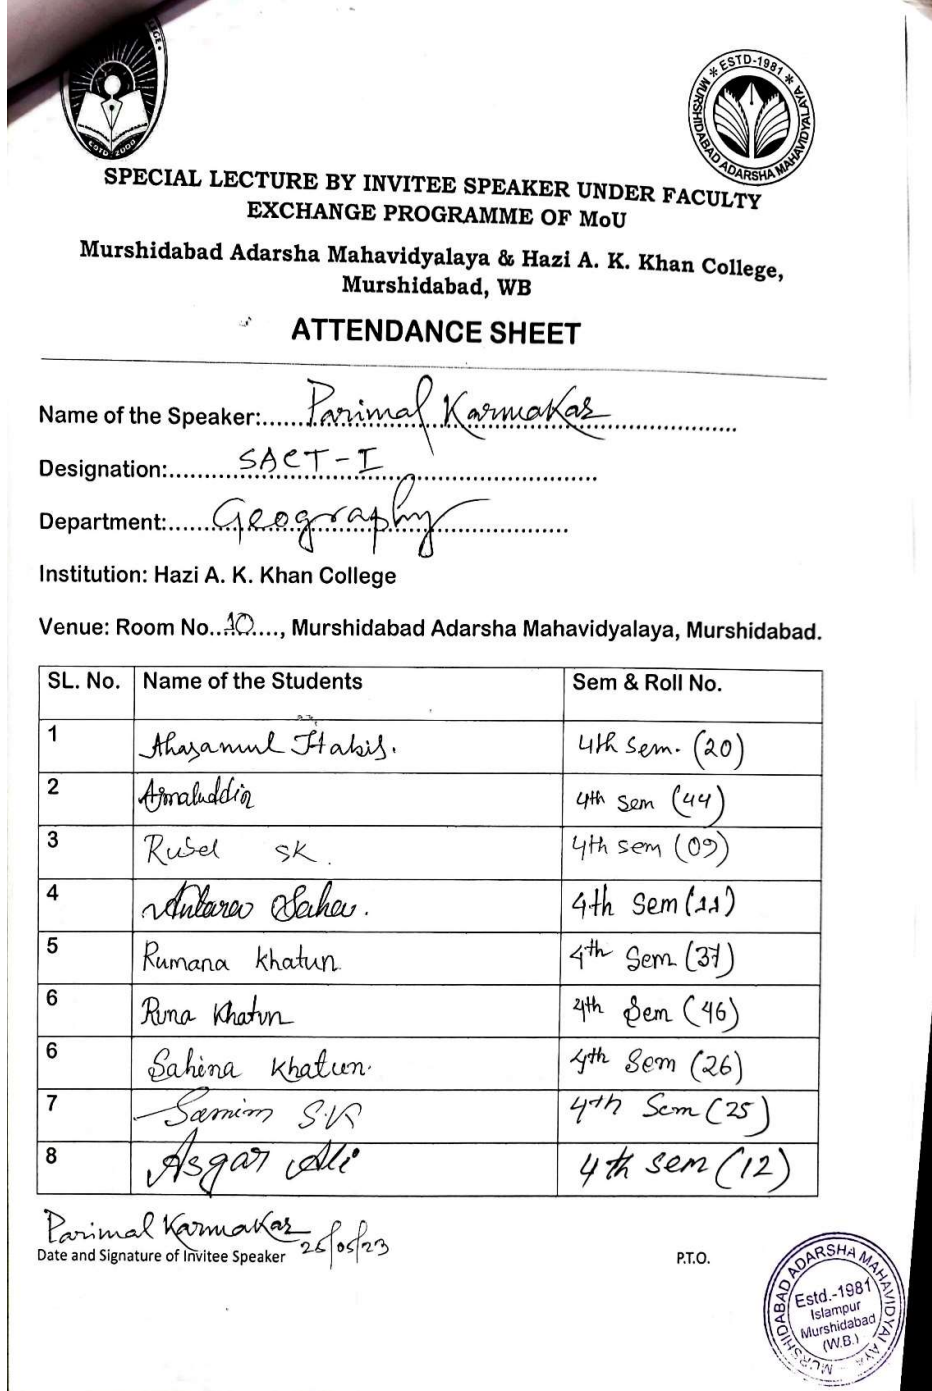 GE •
ESTD 2000
* ESTD-1981 *
MURSHIDABAD ADARSHA MAHAVIDYALAYA
SPECIAL LECTURE BY INVITEE SPEAKER UNDER FACULTY
EXCHANGE PROGRAMME OF MoU
Murshidabad Adarsha Mahavidyalaya & Hazi A. K. Khan College,
Murshidabad, WB
ATTENDANCE SHEET
Name of the Speaker:......Parimal Karmakar......
Designation:......SACT-I......
Department:......Geography......
Institution: Hazi A. K. Khan College
Venue: Room No...10...., Murshidabad Adarsha Mahavidyalaya, Murshidabad.
SL. No. Name of the Students Sem & Roll No.
1 Ahasanul 4th Sem. (20)
2 Ajmaluddin 4th sem (44)
3 Rubel SK. 4th sem (09)
4 4th Sem (11)
5 Rumana Khatun 4th Sem (37)
6 Runa Khatun 4th Sem (46)
6 Sahina Khatun. 4th Sem (26)
7 Samim S.K 4th Sem (25)
8 Asgar Ali 4th sem (12)
Parimal Karmakar 26/05/23
Date and Signature of Invitee Speaker P.T.O.
MURSHIDABAD ADARSHA MAHAVIDYALAYA
Estd.-1981
Islampur
Murshidabad
(W.B.)